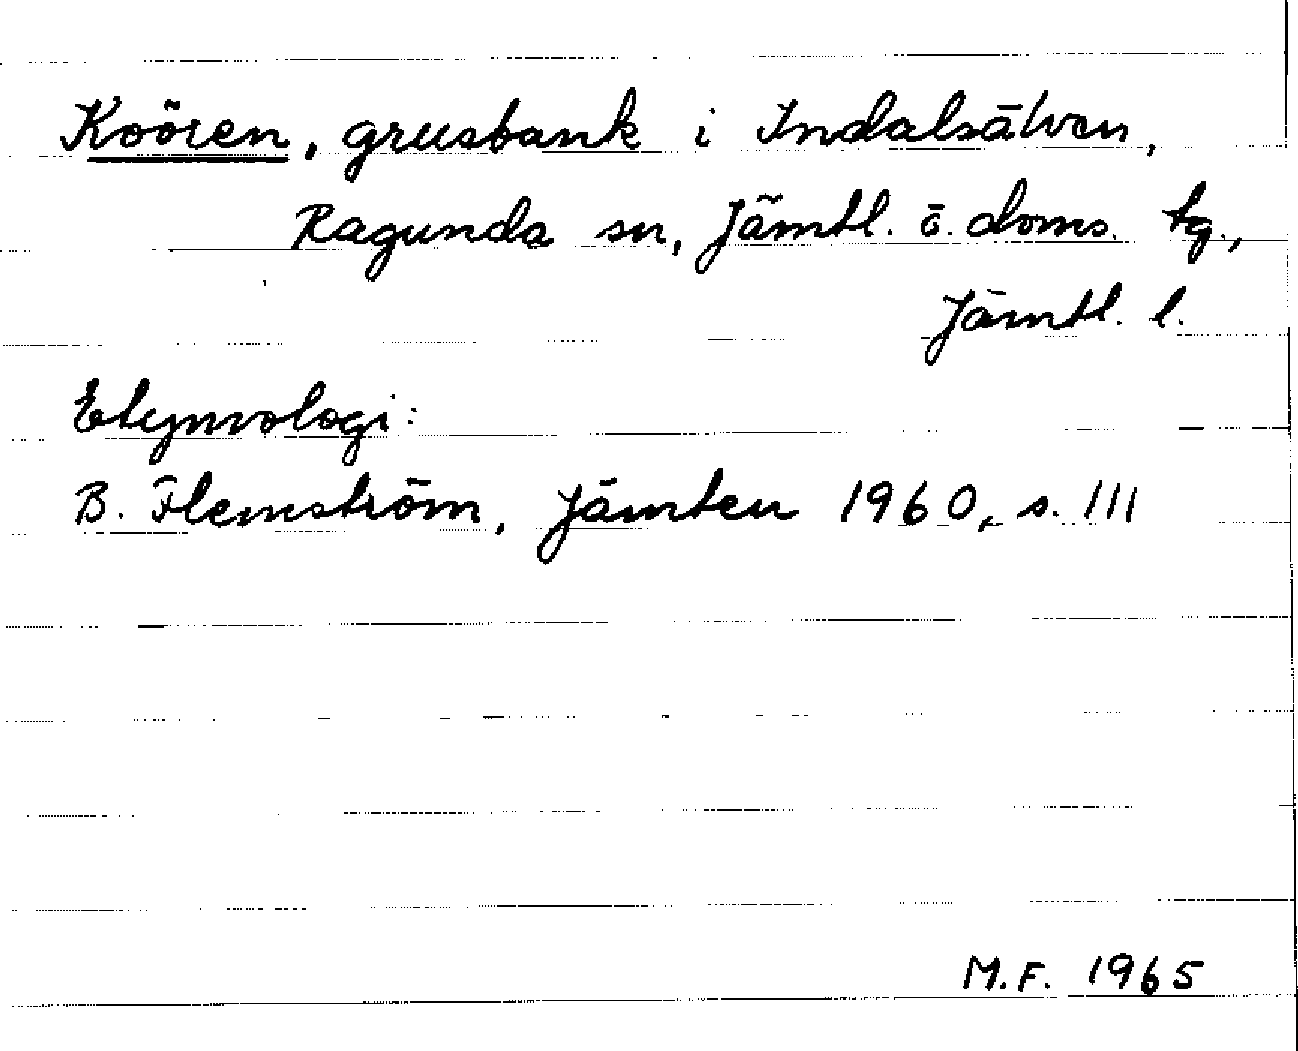 Koören, grusbank i Indalsälven,
Ragunda sn, Jämtl. ö. doms. tg.,
Jämtl. l.
Etymologi:
B. Flemström, Jämten 1960, s. 111
M.F. 1965